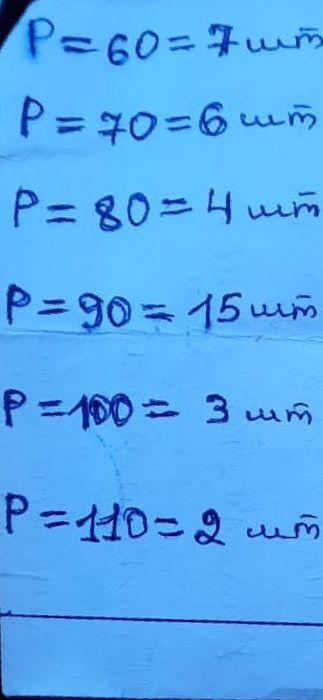 Р = 60 = 7 шт
Р = 70 = 6 шт
Р = 80 = 4 шт
Р = 90 = 15 шт
Р = 100 = 3 шт
Р = 110 = 2 шт